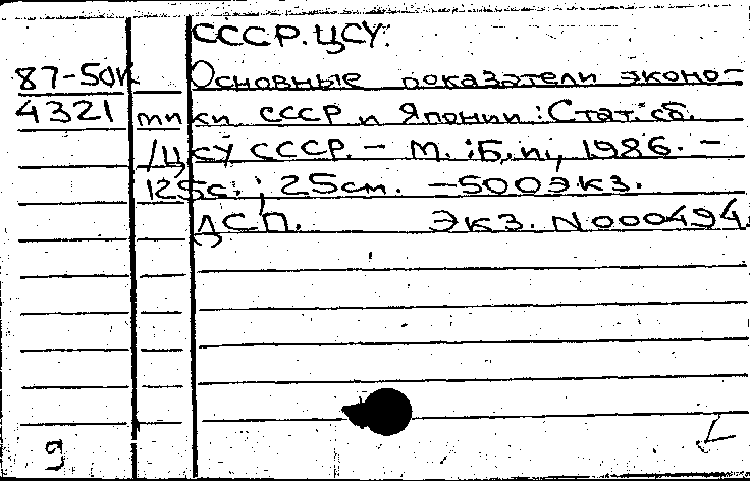 СССР. ЦСУ.
87-50к Основные показатели эконо-
4321 мики СССР и Японии: Стат. сб.
/ЦСУ СССР. – М.: Б.и., 1986. –
125с.; 25см. – 500экз.
ДСП. экз. N000494.
g